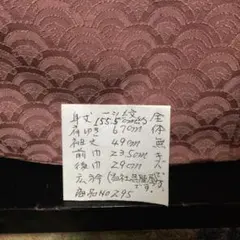 身丈 155.5cm
肩ゆき 67cm
袖丈 49cm
前巾 23.5cm
後巾 29cm
広衿
商品NO 295
全体無キズ
です。